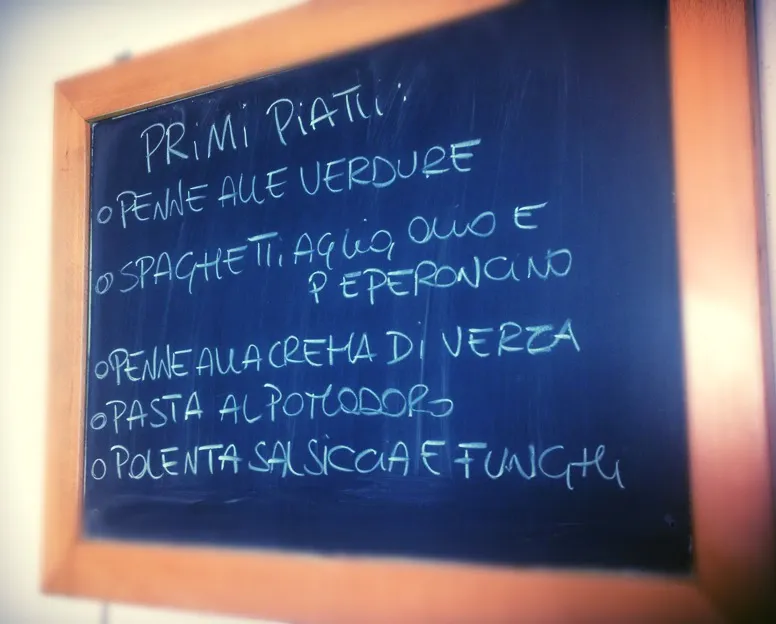 PRIMI PIATTI:
o PENNE ALLE VERDURE
o SPAGHETTI, AGLIO, OLIO E
PEPERONCINO
o PENNE ALLA CREMA DI VERZA
o PASTA AL POMODORO
o POLENTA SALSICCIA E FUNGHI